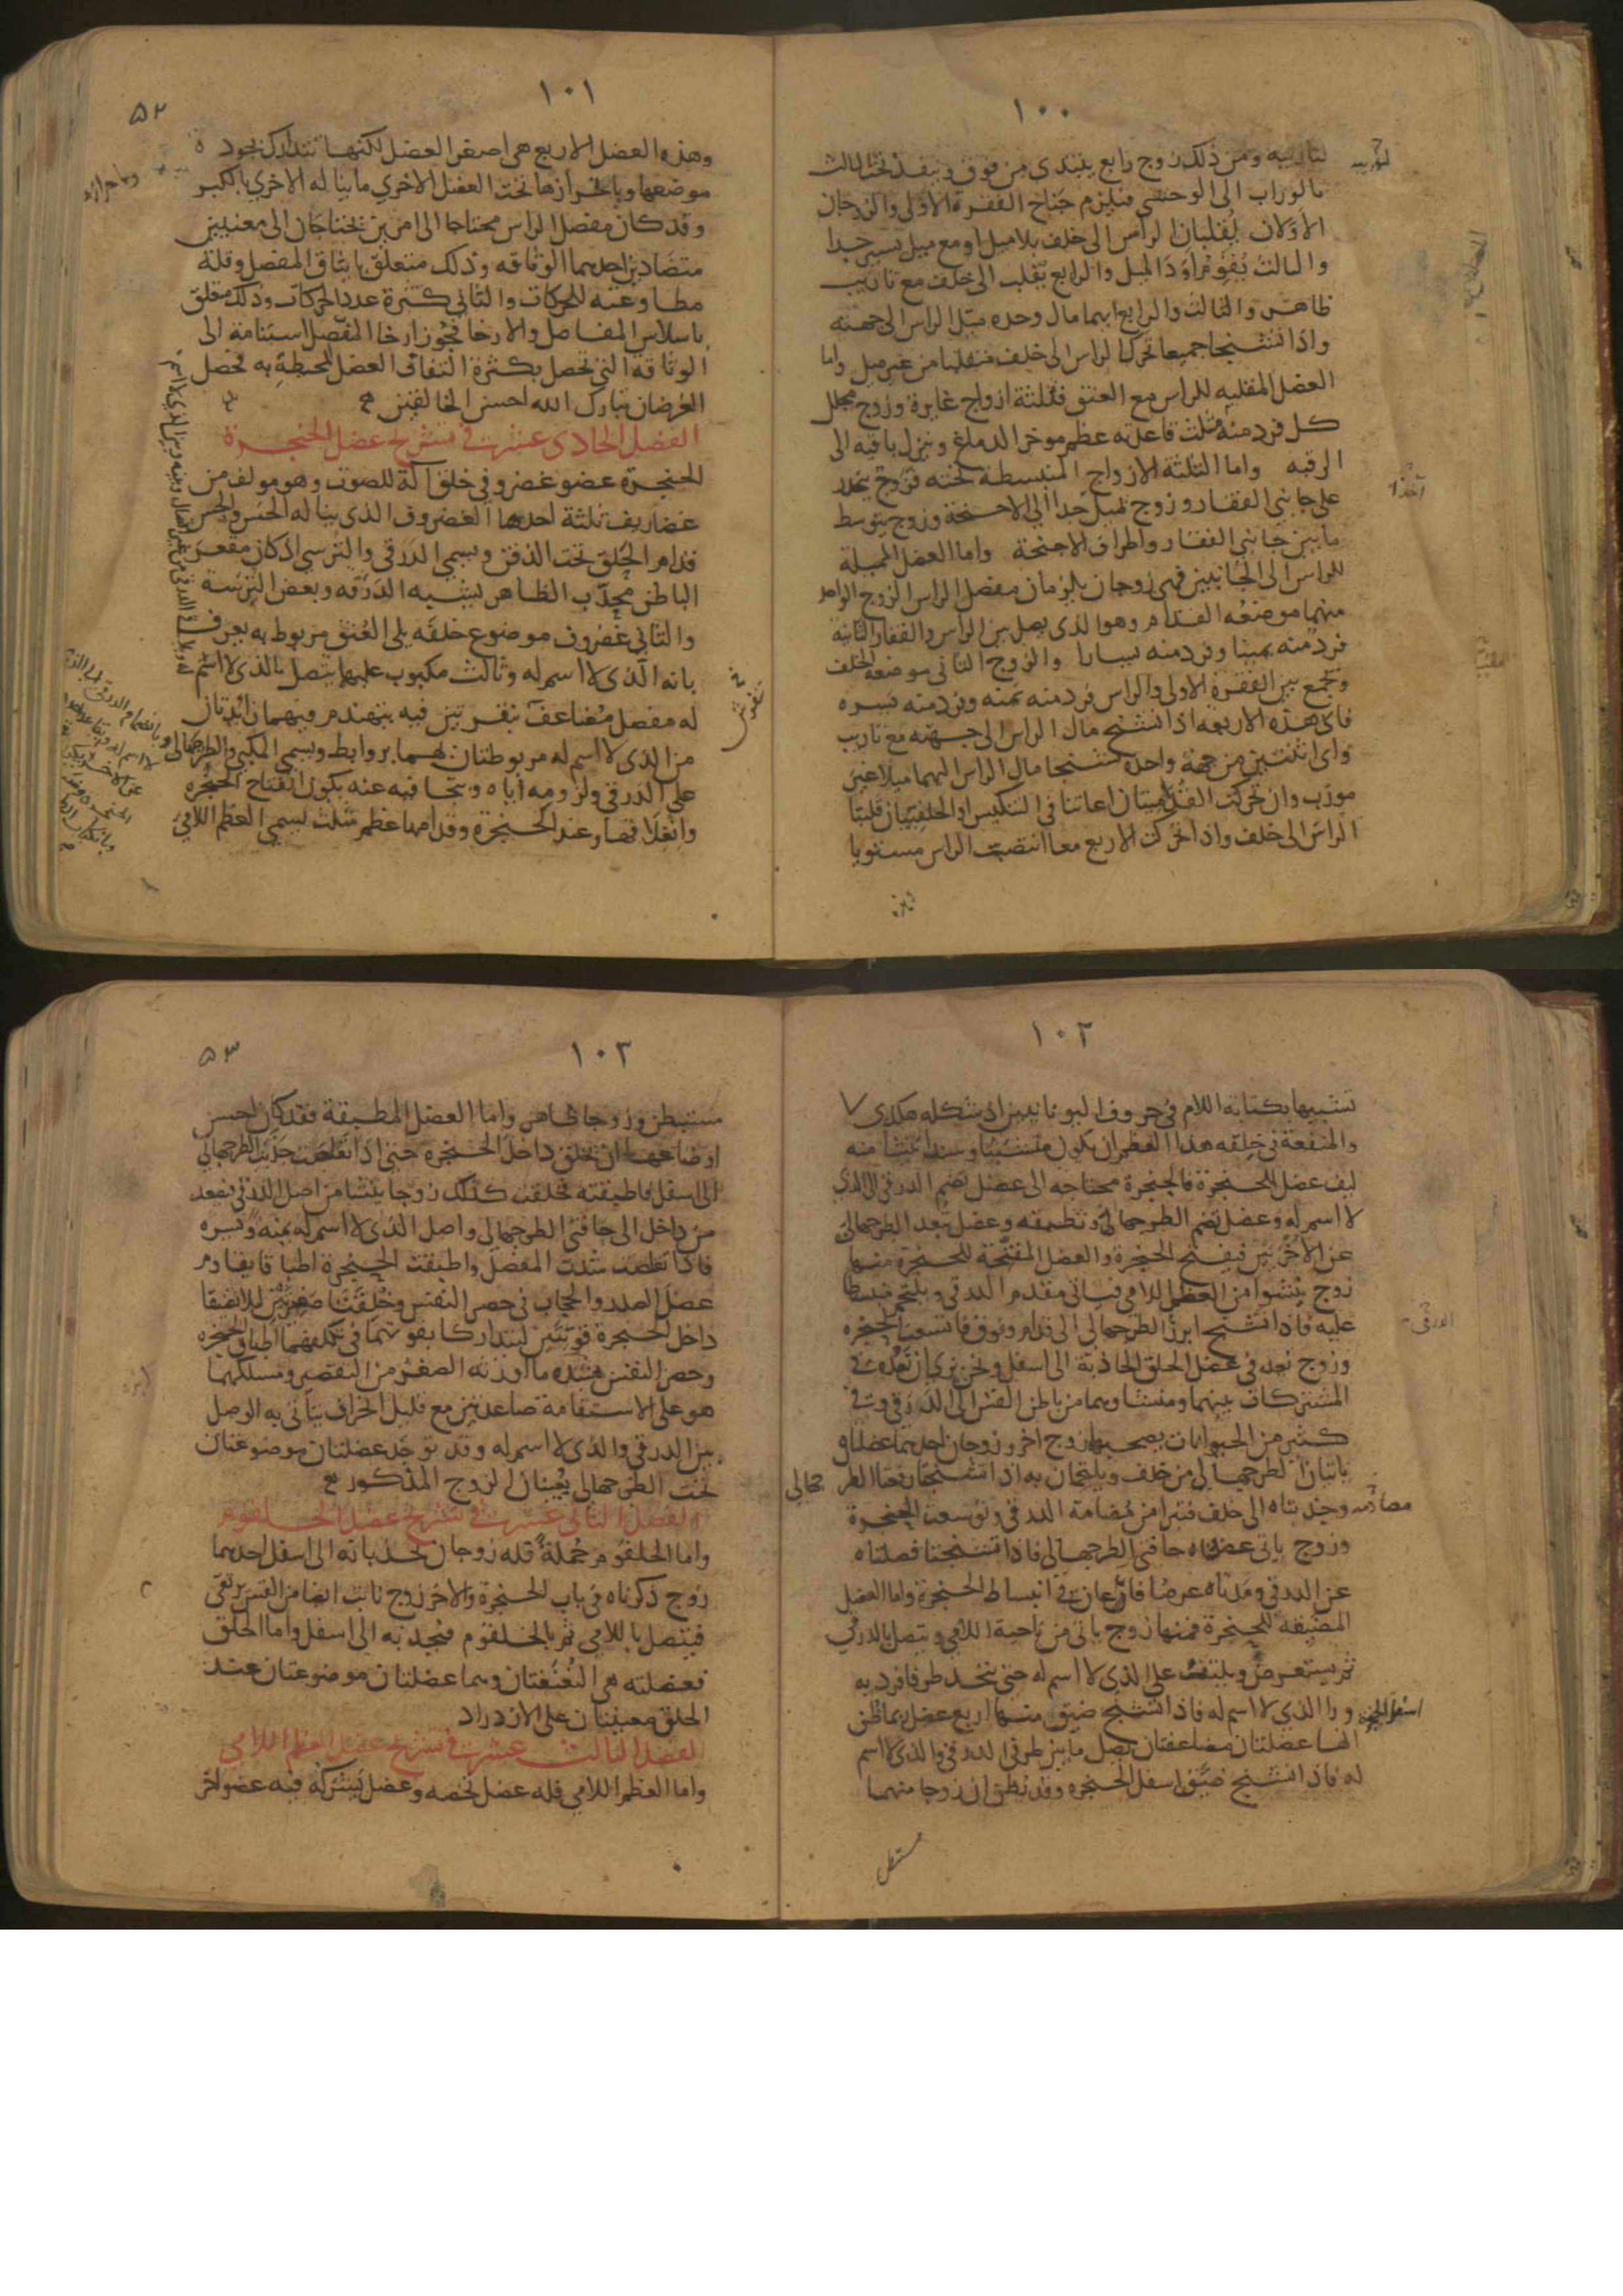 ١٠٠
لتأريبه ومن ذلك زوج رابع يبتدى من فوق وينفذ تحت الثالث
بالوراب الى الوحشى فيلزم جناح الفقرة الاولى والزوجان
الاولان يقلبان الراس الى خلف بلا ميل او مع ميل يسير جدا
والثالث يقوم اود الميل والرابع يقلب الى خلف مع تاريب
ظاهر والثالث والرابع ايهما مال وحده ميل الراس الى جهته
واذا تشنجا جميعا تحرك الراس الى خلف منقلبا من غير ميل واما
العضل المقلبه للراس مع العنق فثلثة ازواج غايرة وزوج مجلل
كل فرد منه مثلث قاعدته عظم موخر الدماغ وينزل باقيه الى
الرقبه واما الثلثة الازواج المنبسطة تحته فزوج ينحدر
على جانبي الفقار وزوج يميل جدا الى الاجنحة وزوج يتوسط
ما بين جانبي الفقار واطراف الاجنحة واما العضل المميلة
للراس الى الجانبين فهى زوجان يلزمان مفصل الراس الزوج الواحد
منهما موضعه القدام وهو الذى يصل بين الراس والفقار الثانية
فرد منه يمينا وفرد منه يسارا والزوج الثانى موضعه الخلف
ويجمع بين الفقرة الاولى والراس فرد منه يمنه وفرد منه يسره
فاى هذه الاربعه اذا تشنج مال الراس الى جهته مع تاريب
واى اثنتين من جهة واحدة تشنجا مال الراس اليهما ميلا غير
مورب وان تحركت القداميتان اعانتا فى التنكيس او الخلفيتان قلبتا
الراس الى خلف واذا تحركت الاربع معا انتصب الراس مستويا
١٠١
٥٢
وهذه العضل الاربع هى اصغر العضل لكنها تتدارك بجودة
موضعها وباحرازها تحت العضل الاخري ما يناله الاخري بالكبر
وقد كان مفصل الراس محتاجا الى امرين يحتاجان الى معنيين
متضادين احدهما الوثاقه وذلك متعلق بايثاق المفصل وقلة
مطاوعته للحركات والثانى كثرة عدد الحركات وذلك متعلق
باسلاس المفاصل والارخا فجوز ارخا المفصل استنامة الى
الوثاقه التى تحصل بكثرة التفاف العضل المحيطة به فحصل
الغرضان تبارك الله احسن الخالقين
الفصل الحادى عشر فى تشريح عضل الحنجرة
الحنجرة عضو غضروفى خلق آلة للصوت وهو مولف من
غضاريف ثلثة احدها الغضروف الذى يناله الحس والجس
قدام الحلق تحت الذقن ويسمى الدرقى والترسى اذ كان مقعر
الباطن محدب الظاهر يشبه الدرقه وبعض الترسة
والثانى غضروف موضوع خلفه يلى العنق مربوط به يعرف
بانه الذى لا اسم له وثالث مكبوب عليهما يتصل بالذى لا اسم
له مفصل مضاعف بنقرتين فيه يتهندم فيهما زايدتان
من الذى لا اسم له مربوطتان بهما بروابط ويسمى المكبى والطرجهالى
على الدرقى ولزومه اياه وبتجافيه عنه يكون انفتاح الحنجره
وانغلاقها وعند الحنجرة وقدامها عظم مثلث يسمى العظم اللامى
١٠٢
تشبيها بكتابه اللام فى حروف اليونانيين اذ شكله هكذى ٧
والمنفعة فى خلقه هذا العظم ان يكون متشبثا وسندا ينشا منه
ليف عضل الحنجرة فالحنجرة محتاجه الى عضل تضم الدرقى الى الذى
لا اسم له وعضل تضم الطرجهالى وتطبقه وعضل تبعد الطرجهالى
عن الاخرين فيفتح الحنجرة والعضل المفتحة للحنجرة منها
زوج ينشوا من العظم اللامى فياتى مقدم الدرقى ويلتحم منبسطا
عليه فاذا تشنج ابرز الطرجهالى الى قدام وفوق فاتسعت الحنجره
وزوج نعده فى عضل الحلق الجاذبة الى اسفل ونحن نرى ان نعده فى
المشتركات بينهما ومنشاوهما من باطن القص الى الدرقى وفى
كثير من الحيوانات يصحبها زوج اخر وزوجان احدهما عضلتاه
ياتيان الطرجهالى من خلف ويلتحمان به اذا تشنجا رفعا الطرجهالى
وجذبتاه الى خلف فتبرا من مضامة الدرقى وتوسعت الحنجرة
وزوج ياتى عضلتاه حافتى الطرجهالى فاذا تشنجتا فصلتاه
عن الدرقى ومدتاه عرضا فاعان فى انبساط الحنجرة واما العضل
المضيقة للحنجرة فمنها زوج ياتى من ناحية اللامى ويتصل بالدرقى
ثم يستعرض ويلتف على الذى لا اسم له حتى يتحد طرفا فرديه
ورا الذى لا اسم له فاذا تشنج ضيق ومنها اربع عضل ربما ظن
انها عضلتان مضاعفتان يصل ما بين طرفى الدرقى والذى لا اسم
له فاذا تشنج ضيق اسفل الحنجره وقد يظن ان زوجا منهما
مستبطن
١٠٣
٥٣
مستبطن وزوجا ظاهر واما العضل المطبقة فقد كان احسن
اوضاعها ان تخلق داخل الحنجرة حتى اذا تقلصت جذبت الطرجهالى
الى اسفل فاطبقته فخلقت كذلك زوجا ينشا من اصل الدرقى فيصعد
من داخل الى حافتى الطرجهالى واصل الذى لا اسم له يمنه ويسره
فاذا تقلصت شدت المفصل واطبقت الحنجرة اطباقا يقاوم
عضل الصدر والحجاب فى حصر النفس وخلقتا صغيرتين ليلا تضيقا
داخل الحنجرة قويتين ليتداركا بقوتهما فى تكلفهما اطباق الحنجرة
وحصر النفس بشده ما اورثه الصغر من التقصير ومسلكهما
هو على الاستقامة صاعدتين مع قليل انحراف يتاتى به الوصل
بين الدرقى والذى لا اسم له وقد توجد عضلتان موضوعتان
تحت الطرجهالى يعينان الزوج المذكور
الفصل الثانى عشر فى تشريح عضل الحلقوم
واما الحلقوم جملة فله زوجان يجذبانه الى اسفل احدهما
زوج ذكرناه فى باب الحنجرة والاخر زوج نابت ايضا من القس يرتقى
فيتصل باللامى ثم بالحلقوم فيجذبه الى اسفل واما الحلق
فعضلته هى النغنغتان وهما عضلتان موضوعتان عند
الحلق معينتان على الازدراد
الفصل الثالث عشر فى تشريح عضل العظم اللامى
واما العظم اللامى فله عضل تخصه وعضل يشركه فيه عضو اخر